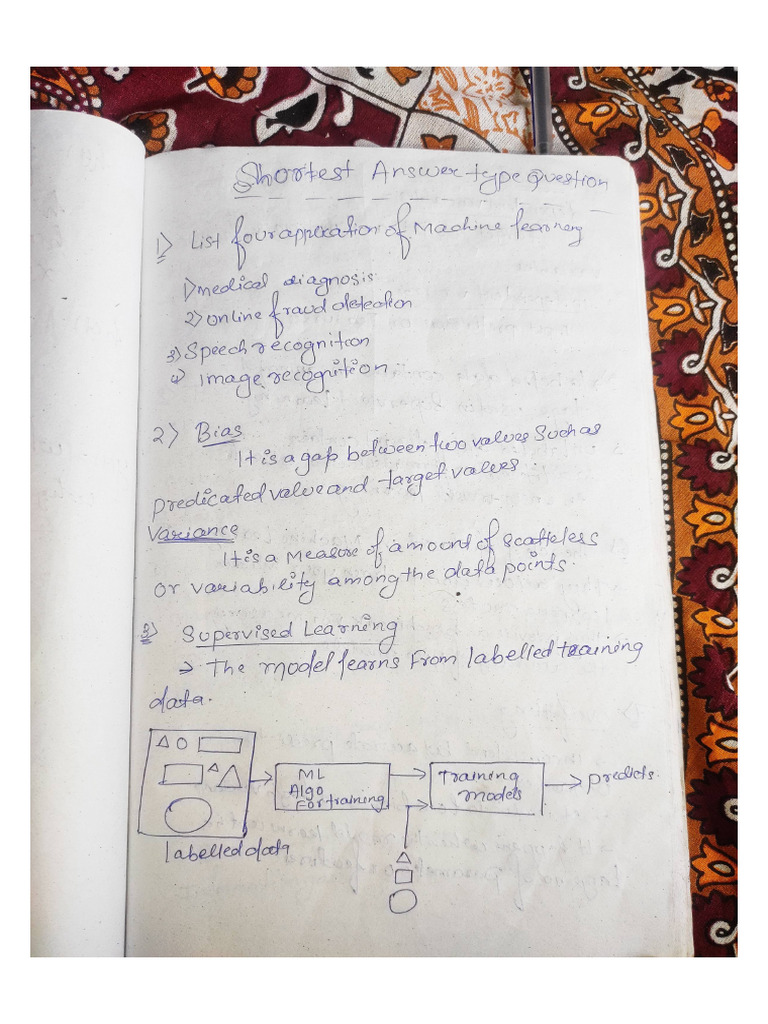 Shortest Answer type Question
1) List four application of Machine learning
1) medical diagnosis
2) online fraud detection
3) Speech recognition
4) Image recognition
2) Bias
It is a gap between two values Such as
predicated value and target values
Variance
It is a Measure of amount of scatteless
or variability among the data points.
3) Supervised Learning
→ The model learns from labelled training
data.
ML
Algo
For training
Training
models
predicts.
labelled data